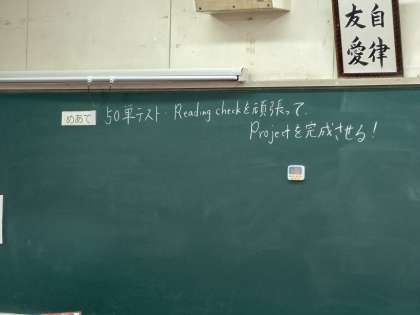 自律
友愛
めあて
50単テスト・Reading checkを頑張って、
Projectを完成させる！